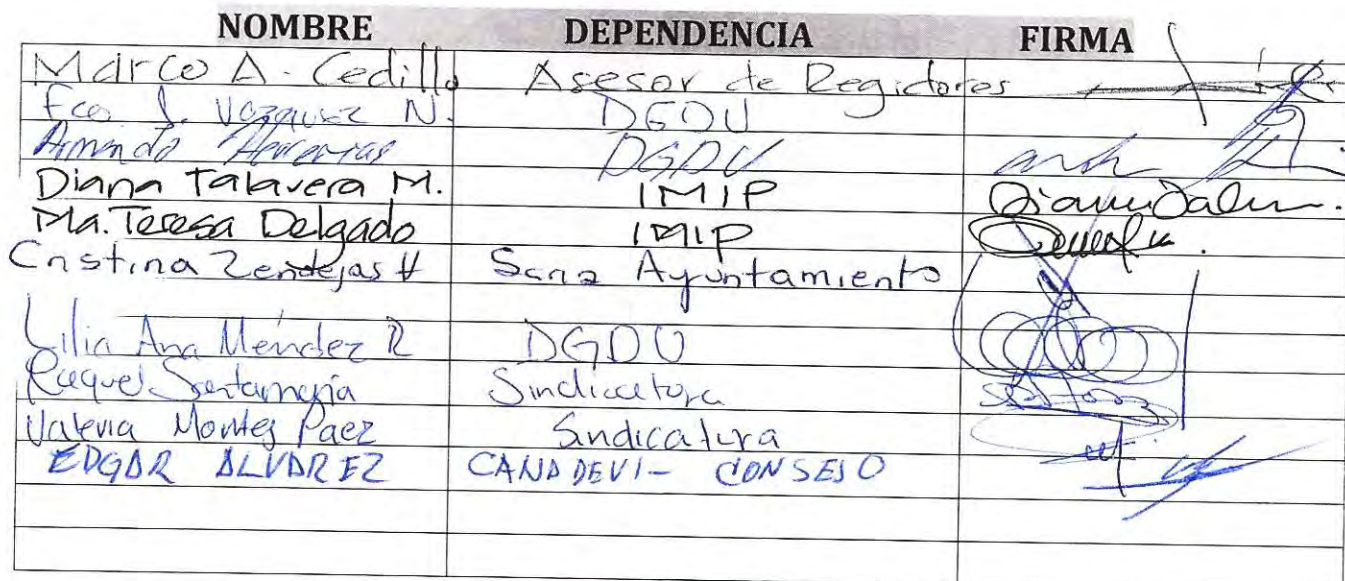 NOMBRE DEPENDENCIA FIRMA
Marco A. Cedillo Asesor de Regidores
Fco J. Vazquez N. DGDU
Armando DGDU
Diana Talavera M. IMIP
Ma. Teresa Delgado IMIP
Cristina Zendejas H Ayuntamiento
Lilia Ana Méndez R DGDU
Raquel Santamaría Sindicatura
Valeria Montes Paez Sindicatura
EDGAR ALVAREZ CANADEVI- CONSEJO